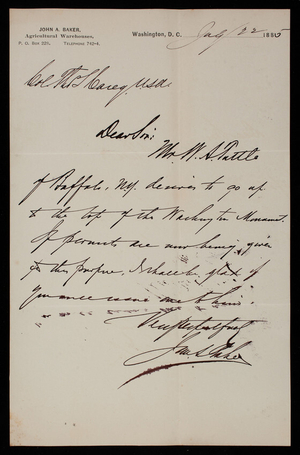 JOHN A. BAKER,
Agricultural Warehouses,
P. O. Box 225. Telephone 742-4.
Washington, D. C. July 22 1885
Col. Thos L Casey USA
Dear Sir;
Mr. W. A. Tuttle
of Buffalo, NY. desires to go up
to the top of the Washington Monument
If permits are now being given
for this purpose. I shall be glad if
you will issue one to him.
Very Respectfully
Jno A Baker